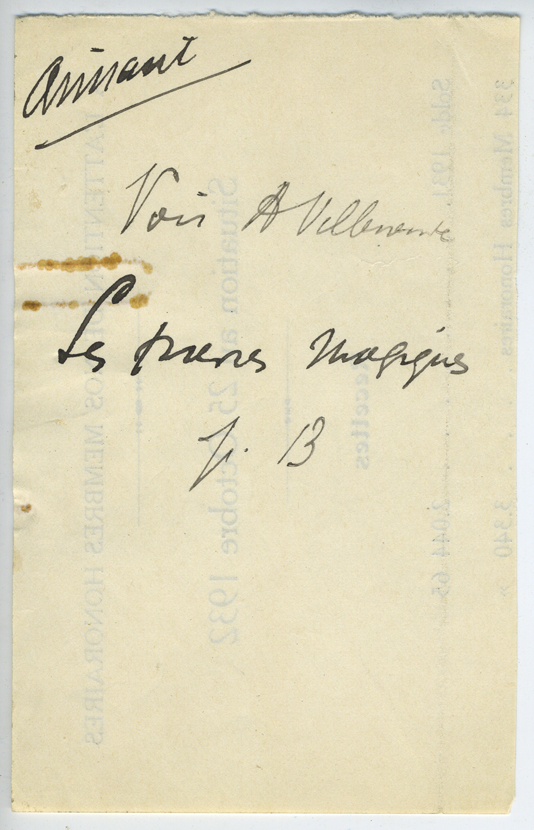 Aimant
Voir A Villeneuve
Les pierres magiques
p. 13
MEMBRES HONORAIRES
Situation au 25 Octobre 1932
Recettes
Solde 1931 2.044 65
334 Membres Honoraires 3.340 »